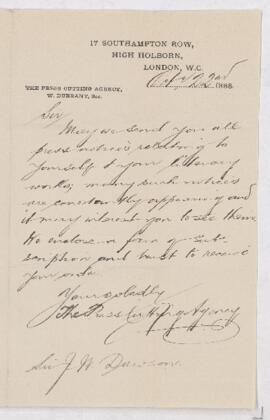 17 SOUTHAMPTON ROW,
HIGH HOLBORN,
LONDON, W.C.
22nd 1888.
THE PRESS CUTTING AGENCY,
W. DURRANT, Sec.
Sir
May we send you all
press notices relating to
yourself & your literary
works; many such notices
are constantly appearing and
it may interest you to see them.
We enclose a form of sub-
scription and trust to receive
your order.
Yours
The Press Cutting Agency
Sir J. W. Dawson.